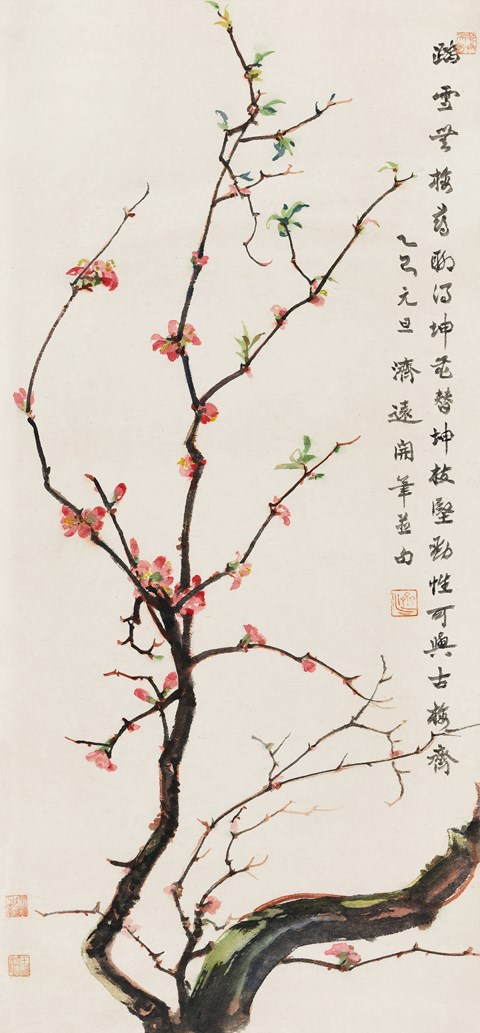 踏雪無梅聊得坤花替坤枝堅勁性可與古梅齊
乙巳元旦濟遠開筆並句